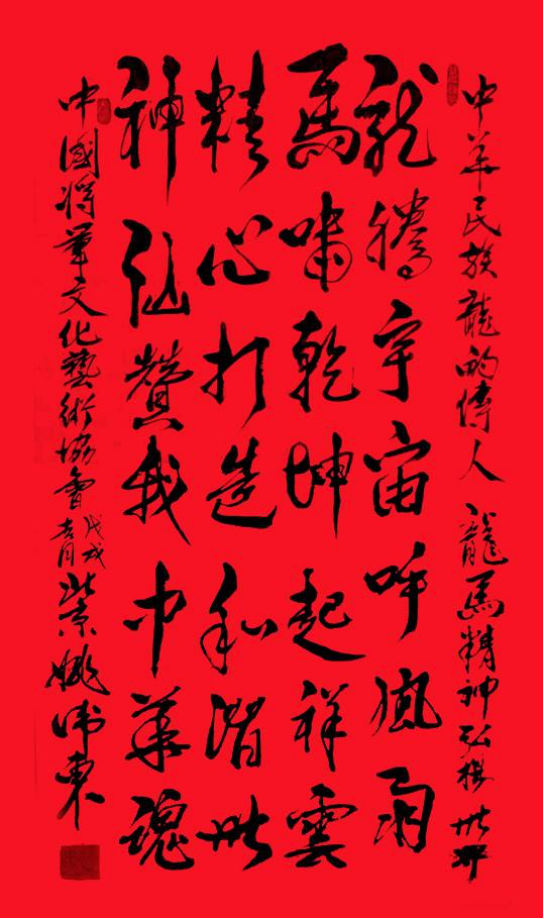 中華民族龍的傳人 龍馬精神弘揚世界
龍騰宇宙呼風雨
馬嘯乾坤起祥雲
精心打造和諧世
神仙贊我中華魂
中國將軍文化藝術協會 戊戌 北京 姚東